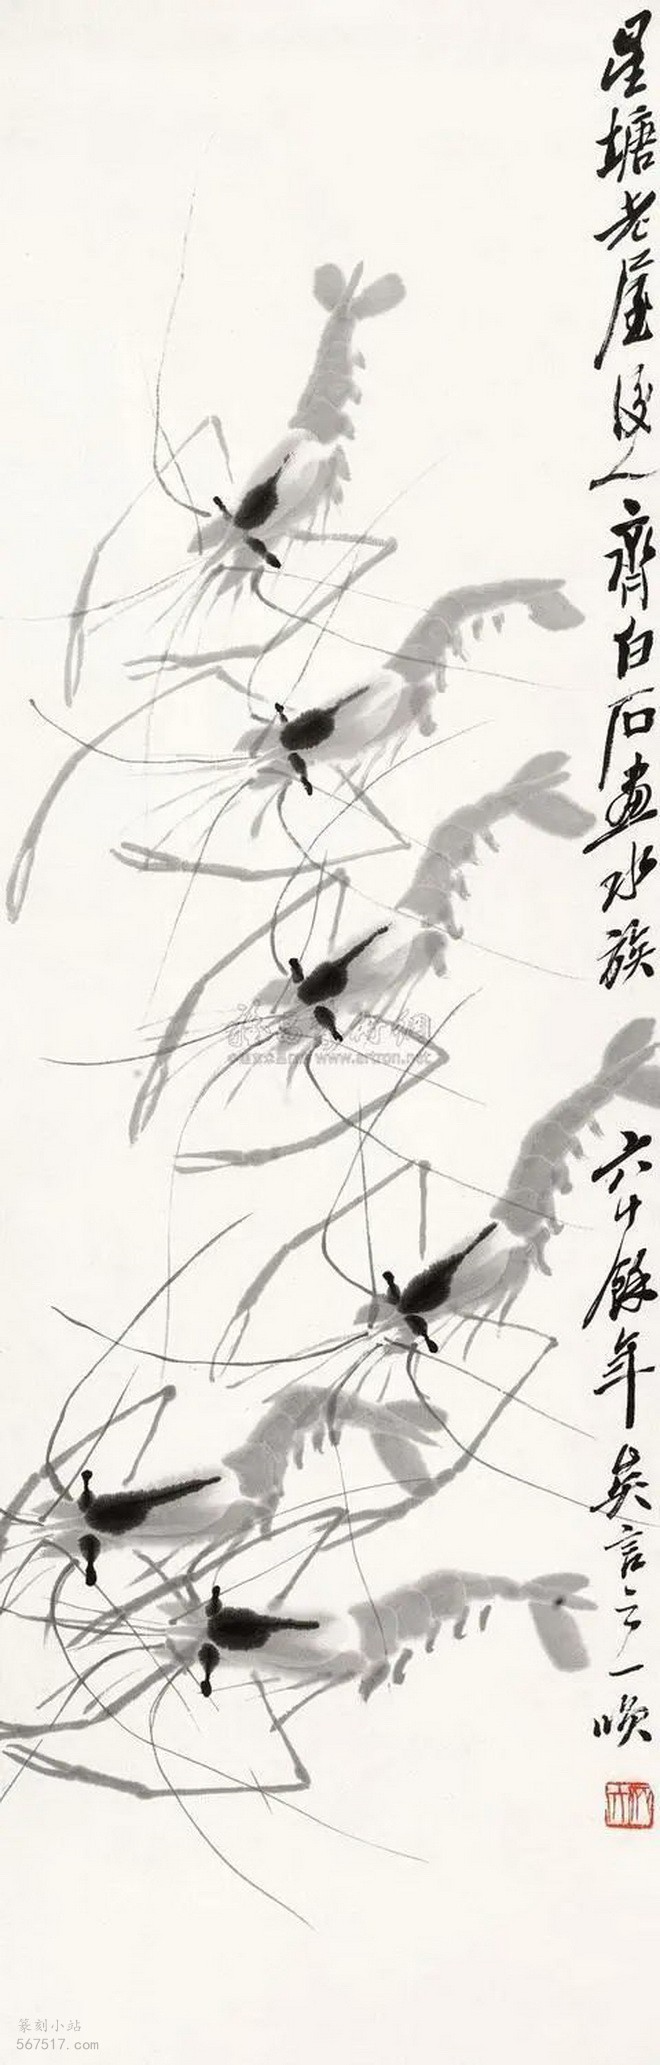 星塘老屋後人齊白石畫水族 六十餘年矣言之一嘆
www.artron.net
篆刻小站
567517.com